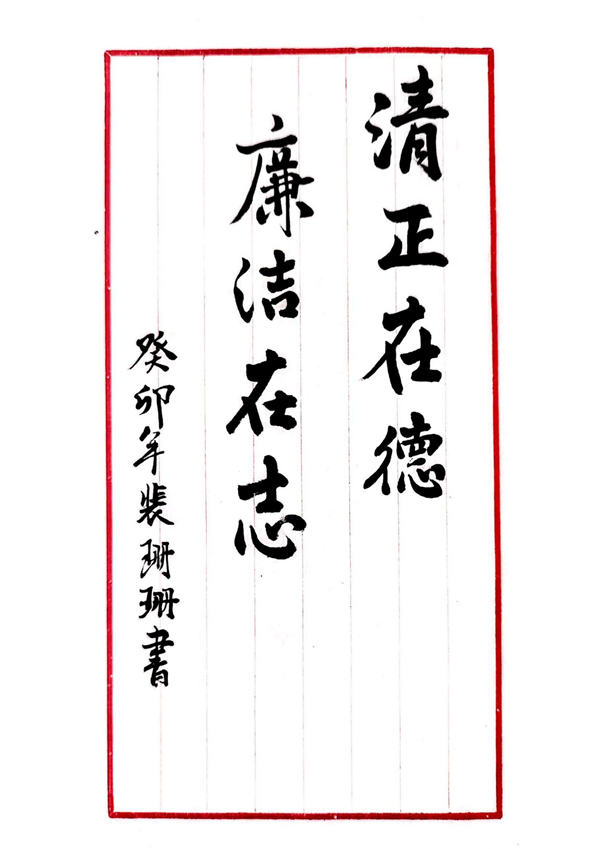 清正在德
廉洁在志
癸卯年裴珊珊書